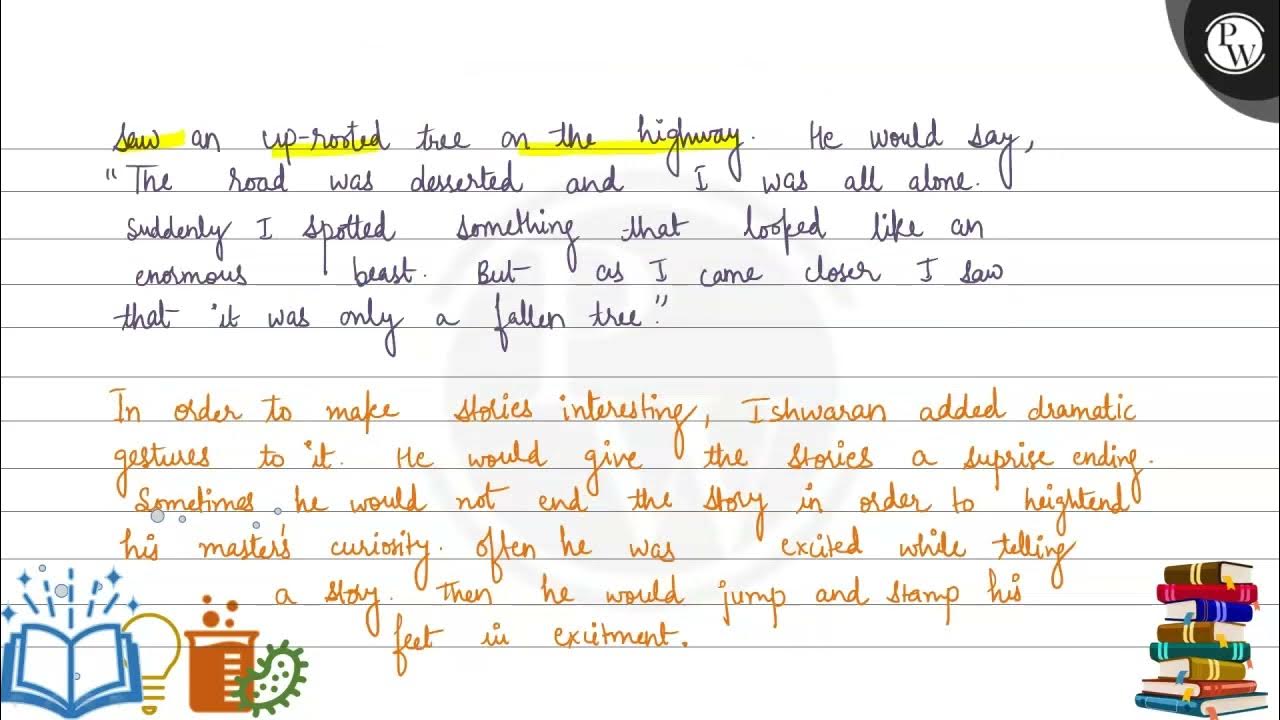 PW
saw an up-rooted tree on the highway. He would say,
"The road was desserted and I was all alone.
Suddenly I spotted something that looked like an
enormous beast. But as I came closer I saw
that it was only a fallen tree."
In order to make stories interesting, Ishwaran added dramatic
gestures to it. He would give the stories a suprise ending.
Sometimes he would not end the story in order to heightend
his master's curiosity. Often he was excited while telling
a story. Then he would jump and stamp his
feet in excitment.